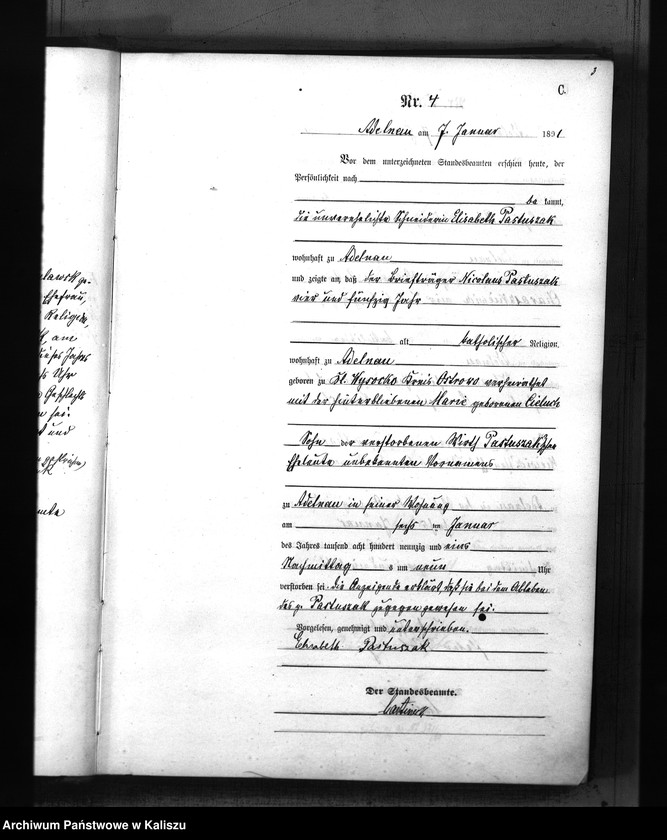 3
C.
Nr. 4
Adelnau am 7. Januar 1891
Vor dem unterzeichneten Standesbeamten erschien heute, der
Persönlichkeit nach
be kannt,
die unverehelichte Schneiderin Elisabeth Pastuszak
wohnhaft zu Adelnau
und zeigte an, daß der Briefträger Nicolaus Pastuszak
vier und fünfzig Jahr
alt katholischer Religion,
wohnhaft zu Adelnau
geboren zu Kreis Ostrowo verheirathet
mit der hinterbliebenen Marie geborenen
Sohn der verstorbenen Wirth Pastuszak
Eheleute unbekannten Vornamens
zu Adelnau in seiner Wohnung
am sechs ten Januar
des Jahres tausend acht hundert neunzig und eins
Nachmittag s um neun Uhr
verstorben sei. Die Anzeigende erklärt daß sie bei dem Ableben
des p. Pastuszak zugegen gewesen sei.
Vorgelesen, genehmigt und unterschrieben.
Elisabeth Pastuszak
Der Standesbeamte.
ge-
Ehefrau,
Religion,
am
dieses Jahres
Uhr
Geschlechts
sei.
und
Archiwum Państwowe w Kaliszu